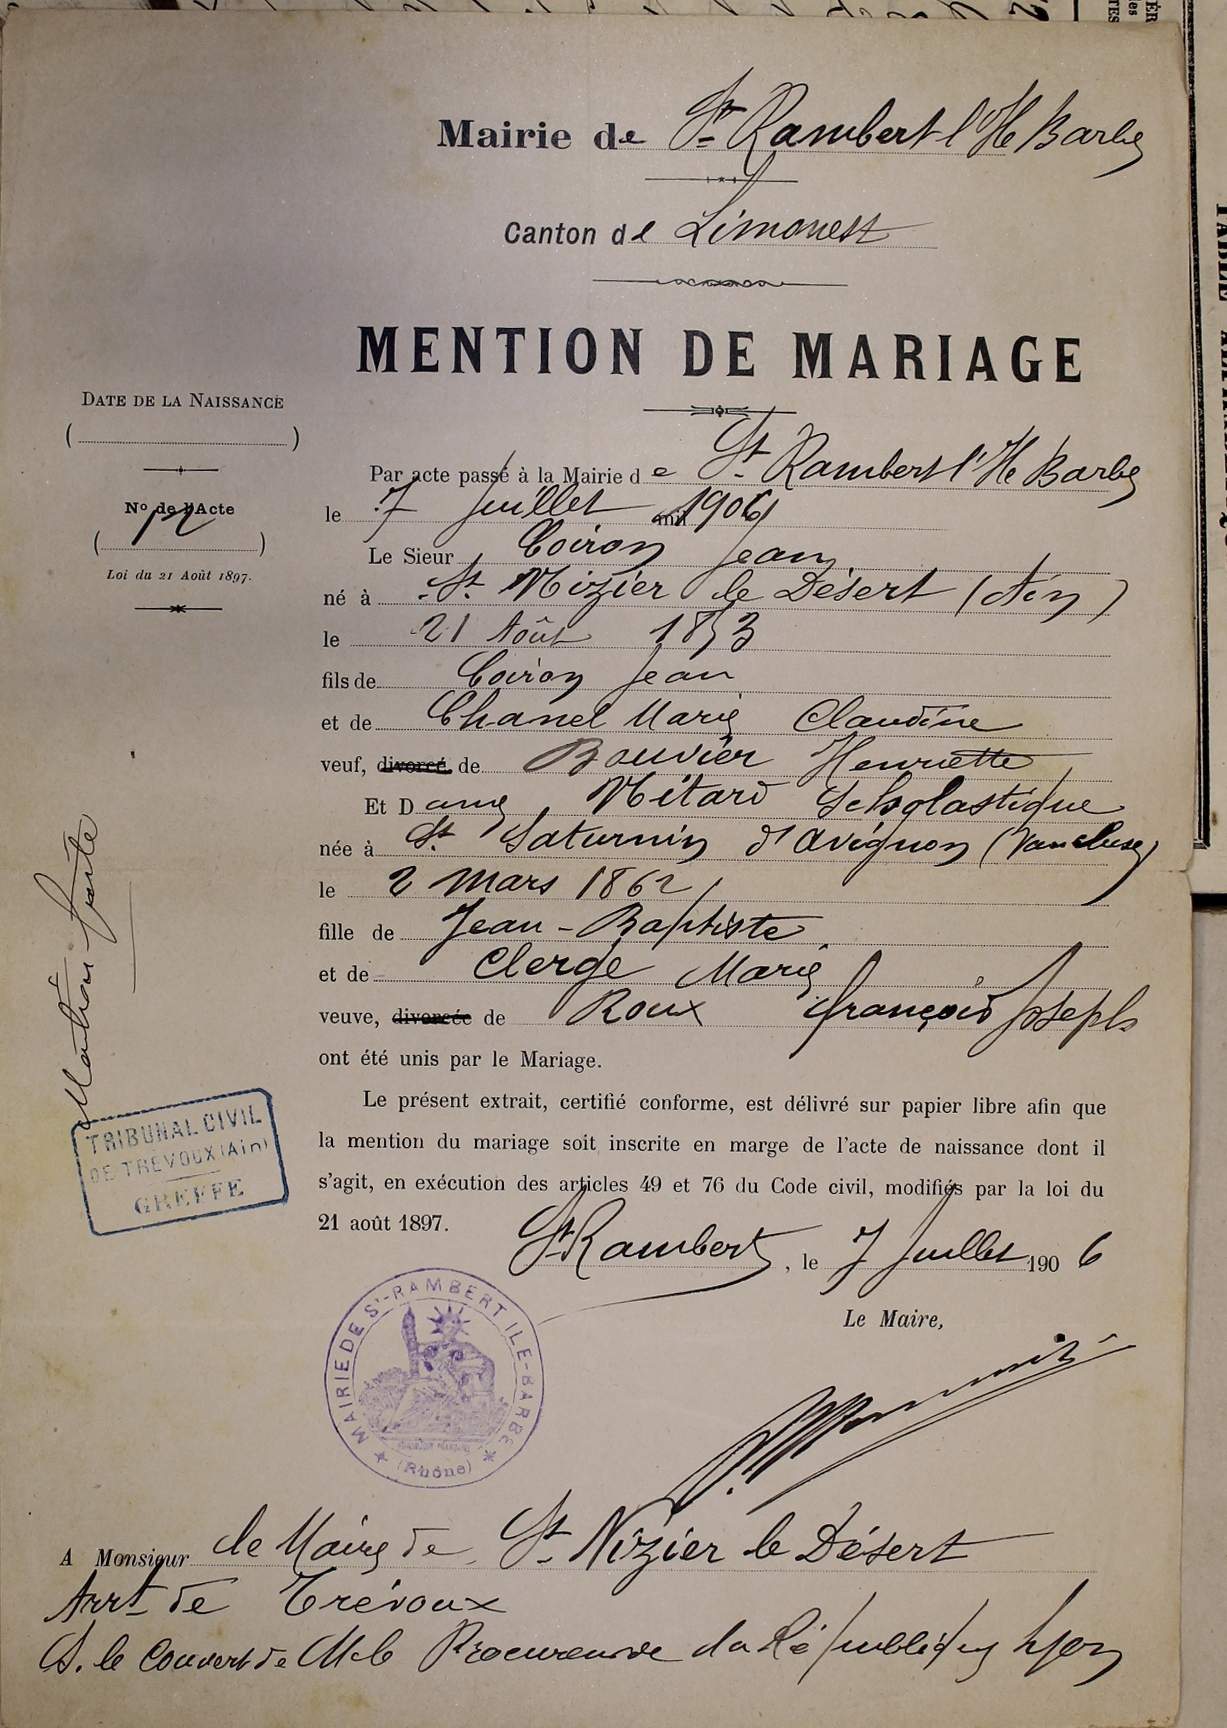 Mairie de St Rambert l'Ile Barbe
Canton de Limonest
MENTION DE MARIAGE
DATE DE LA NAISSANCE
( )
No de l'Acte
( 12 )
Loi du 21 Août 1897.
Par acte passé à la Mairie de St Rambert l'Ile Barbe
le 7 Juillet mil 1906
Le Sieur Coiron Jean
né à St Nizier le Désert (Ain)
le 21 Août 1853
fils de Coiron Jean
et de Chanel Marie Claudine
veuf, divorcé de Bouvier Henriette
Et Dame Mitard Scholastique
née à St Saturnin d'Avignon (Vaucluse)
le 2 Mars 1862
fille de Jean-Baptiste
et de Clergé Marie
veuve, divorcée de Roux François Joseph
ont été unis par le Mariage.
Le présent extrait, certifié conforme, est délivré sur papier libre afin que
la mention du mariage soit inscrite en marge de l'acte de naissance dont il
s'agit, en exécution des articles 49 et 76 du Code civil, modifiés par la loi du
21 août 1897.
St Rambert, le 7 Juillet 1906
Le Maire,
Mention faite
TRIBUNAL CIVIL
DE TRÉVOUX (Ain)
GREFFE
MAIRIE DE St-RAMBERT ILE-BARBE
(Rhône)
A Monsieur le Maire de St Nizier le Désert
Arrt de Trévoux
S. le Couvert de M. le Procureur de la République Lyon